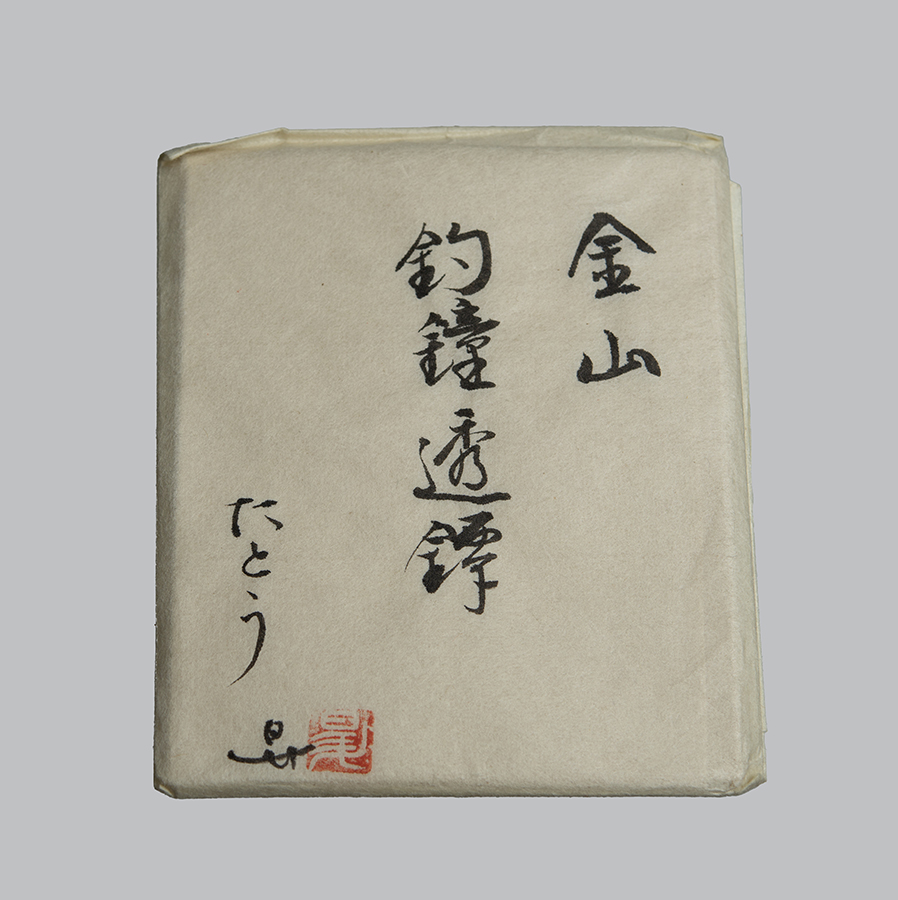 金山
釣鐘透鐔
たとう